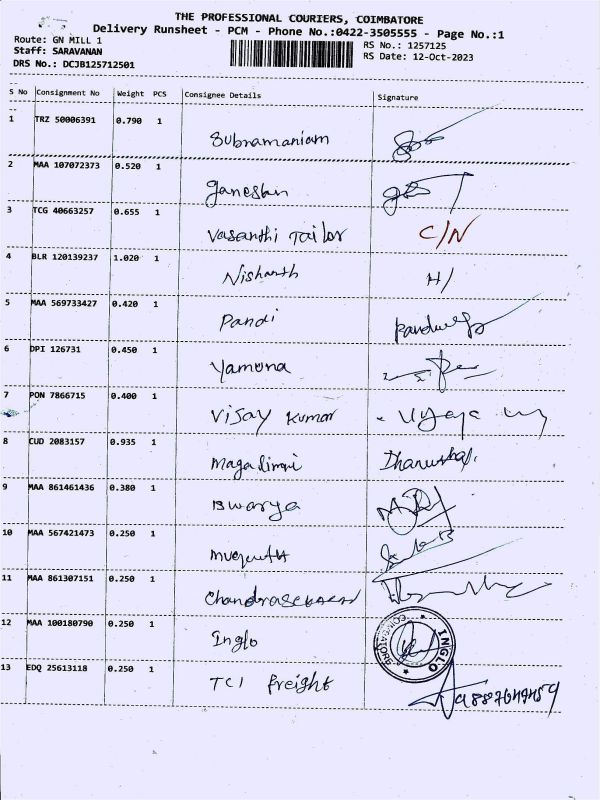 THE PROFESSIONAL COURIERS, COIMBATORE
Delivery Runsheet - PCM - Phone No.:0422-3505555 - Page No.:1
Route: GN MILL 1
RS No.: 1257125
Staff: SARAVANAN
RS Date: 12-Oct-2023
DRS No.: DCJB125712501
S No Consignment No Weight PCS Consignee Details Signature
1 TRZ 50006391 0.790 1
Subramaniam
2 MAA 107072373 0.520 1
Ganeshan
3 TCG 40663257 0.655 1
Vasanthi Tailor C/N
4 BLR 120139237 1.020 1
Nishanth H/
5 MAA 569733427 0.420 1
Pandi
6 DPI 126731 0.450 1
Yamuna
7 PON 7866715 0.400 1
Vijay Kumar
8 CUD 2083157 0.935 1
9 MAA 861461436 0.380 1
Iswarya
10 MAA 567421473 0.250 1
11 MAA 861307151 0.250 1
Chandrasekaran
12 MAA 100180790 0.250 1
Inglo INGLO COIMBATORE
13 EDQ 25613118 0.250 1
TCI freight